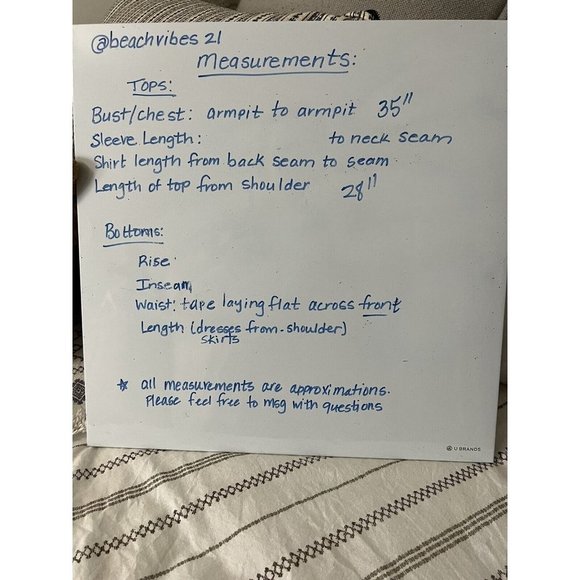 @beachvibes 21
Measurements:
Tops:
Bust/chest: armpit to armpit 35"
Sleeve Length: to neck seam
Shirt length from back seam to seam
Length of top from shoulder 28"
Bottoms:
Rise
Inseam
Waist: tape laying flat across front
Length (dresses from-shoulder)
skirts
* all measurements are approximations.
Please feel free to msg with questions
U BRANDS